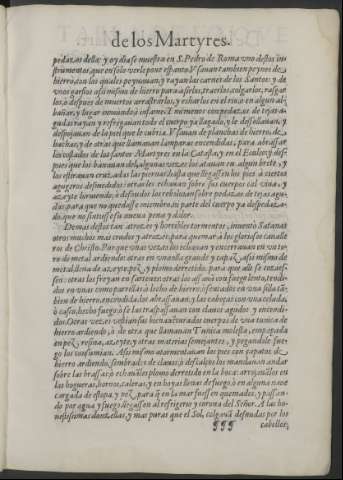 de los Martyres.
pedaços della: y oy dia se muestra en S. Pedro de Roma vno destos in
strumentos, que en solo verle pone espanto. Vsauan tambien peynes de
hierro, con los quales peynauan, y rayan las carnes de los Santos: y de
vnos garfios assi mismo de hierro para assirlos, traerlos, colgarlos, rasgar
los, o despues de muertos arrastrarlos, y echarlos en el rio, o en algun al-
bañar, y lugar inmundo o infame. Y menores con pedaços de tejas a-
gudas rayan y refregauan todo el cuerpo ya llagado, y le dessollauan, y
despojauan de la piel que le cubria. Vsauan de planchas de hierro, de
hachas, y de otras que llamauan lamparas encendidas, para abrassar
los costados de los santos Martyres en la Catasta, y en el Eculeo: y des-
pues que los baxauan del, algunas vezes los atauan en algun brete, y
los estirauan cruzadas las piernas hasta que llegassen los pies a ciertos
agugeros desmedidos: otras les echauan sobre sus cuerpos cal viua, y
azeyte hiruiendo, o desnudos los rebolcauan sobre pedaços de tejas agu-
das, para que no quedasse miembro, ni parte del cuerpo ya despedaça-
do, que no sintiesse su nueua pena y dolor.
Demas destos tan atrozes y horribles tormentos, inuentò Satanas
otros muchos mas crudos y atrozes, para quemar a los gloriosos caualle
ros de Christo. Porque vnas vezes los echauan y encerrauan en vn to-
ro de metal ardiendo: otras en vna olla grande y capaz, assi mismo de
metal llena de azeyte, pez, y plomo derretido, para que alli se cozies-
sen: otras los freyan en sartenes: otras los assauan con fuego lento, tendi-
dos en vnas como parrillas o lecho de hierro: o sentados en vna silla tã
bien de hierro, encendida los abrasauan: y las cabeças con vna celada,
o casco hecho fuego: o se las traspassauan con clauos agudos y encendi-
dos. Otras vezes vestian los bienauenturados cuerpos de vna tunica de
hierro ardiendo, o de otra que llamauan Tunica molesta, empapada
en pez, resina, azeyte, y otras materias semejantes, y pegandole fue-
go los consumian. Assi mismo atormentauan los pies con çapatos de
hierro ardiendo, sembrados de clauos, o descalços los mandauan andar
sobre las brassas: o echauãles plomo derretido en la boca: arrojauãlos en
las hogueras, hornos, caleras, y en hoyas llenas de fuego, o en alguna naue
cargada de estopa, y pez, para q̃ en la mar fuessen quemados, y passan-
do por agua y fuego llegassen al refrigerio y corona del Señor. A las ho-
nestissimas donzellas, y mas puras que el Sol, colgauã desnudas por los
¶¶¶ cabellos,